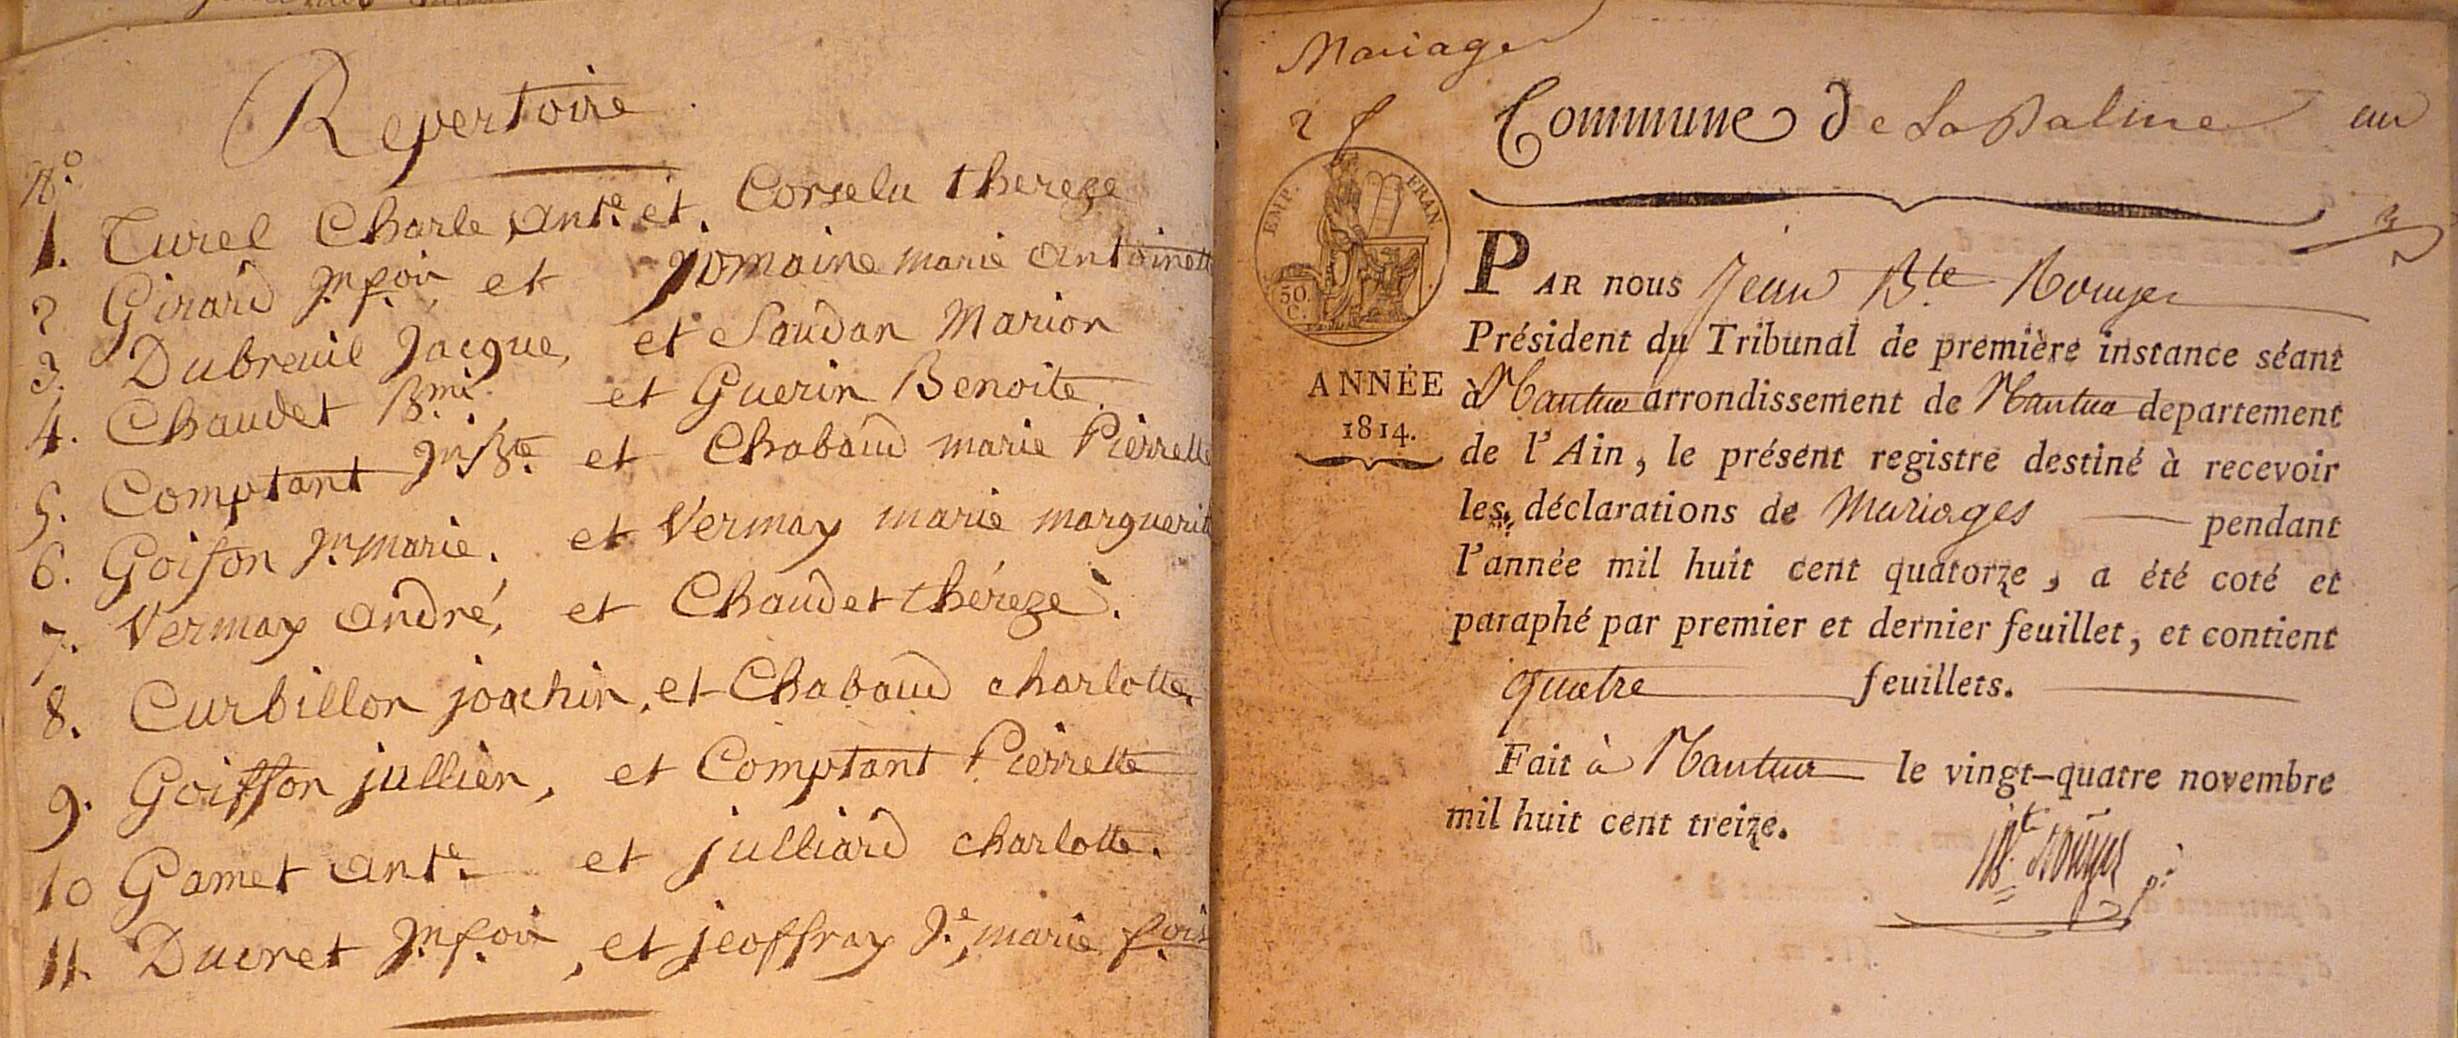 Repertoire
N.o
1. Turel Charle ant.e et. Corselu thereze
2 Girard j.n f.ois et jomaine marie antoinette
3. Dubreuil jacque, et Saudan Marion
4. Chaudet B.mi et Guerin Benoite.
5. Comptant jn Bte. et Chabaud marie Pierrette
6. Goifon J.n marie. et Vermay marie marguerit
7. Vermay andré, et Chaudet théreze.
8. Curbillon joachin, et Chabaud charlotte
9. Goiffon jullien, et Comptant Pierrette
10 Gamet ant.e et julliard charlotte.
11. Ducret j.n f.ois, et jeoffray J.e marie f.ois
Mariages
2 f
Commune de La Balme un
EMP. FRAN.
50. C.
ANNÉE
1814.
PAR nous Jean B.te Rouyer
Président du Tribunal de première instance séant
à Nantua arrondissement de Nantua departement
de l'Ain, le présent registre destiné à recevoir
les déclarations de Mariages pendant
l'année mil huit cent quatorze, a été coté et
paraphé par premier et dernier feuillet, et contient
quatre feuillets.
Fait à Nantua le vingt-quatre novembre
mil huit cent treize.
Bt. Rouyer p.t